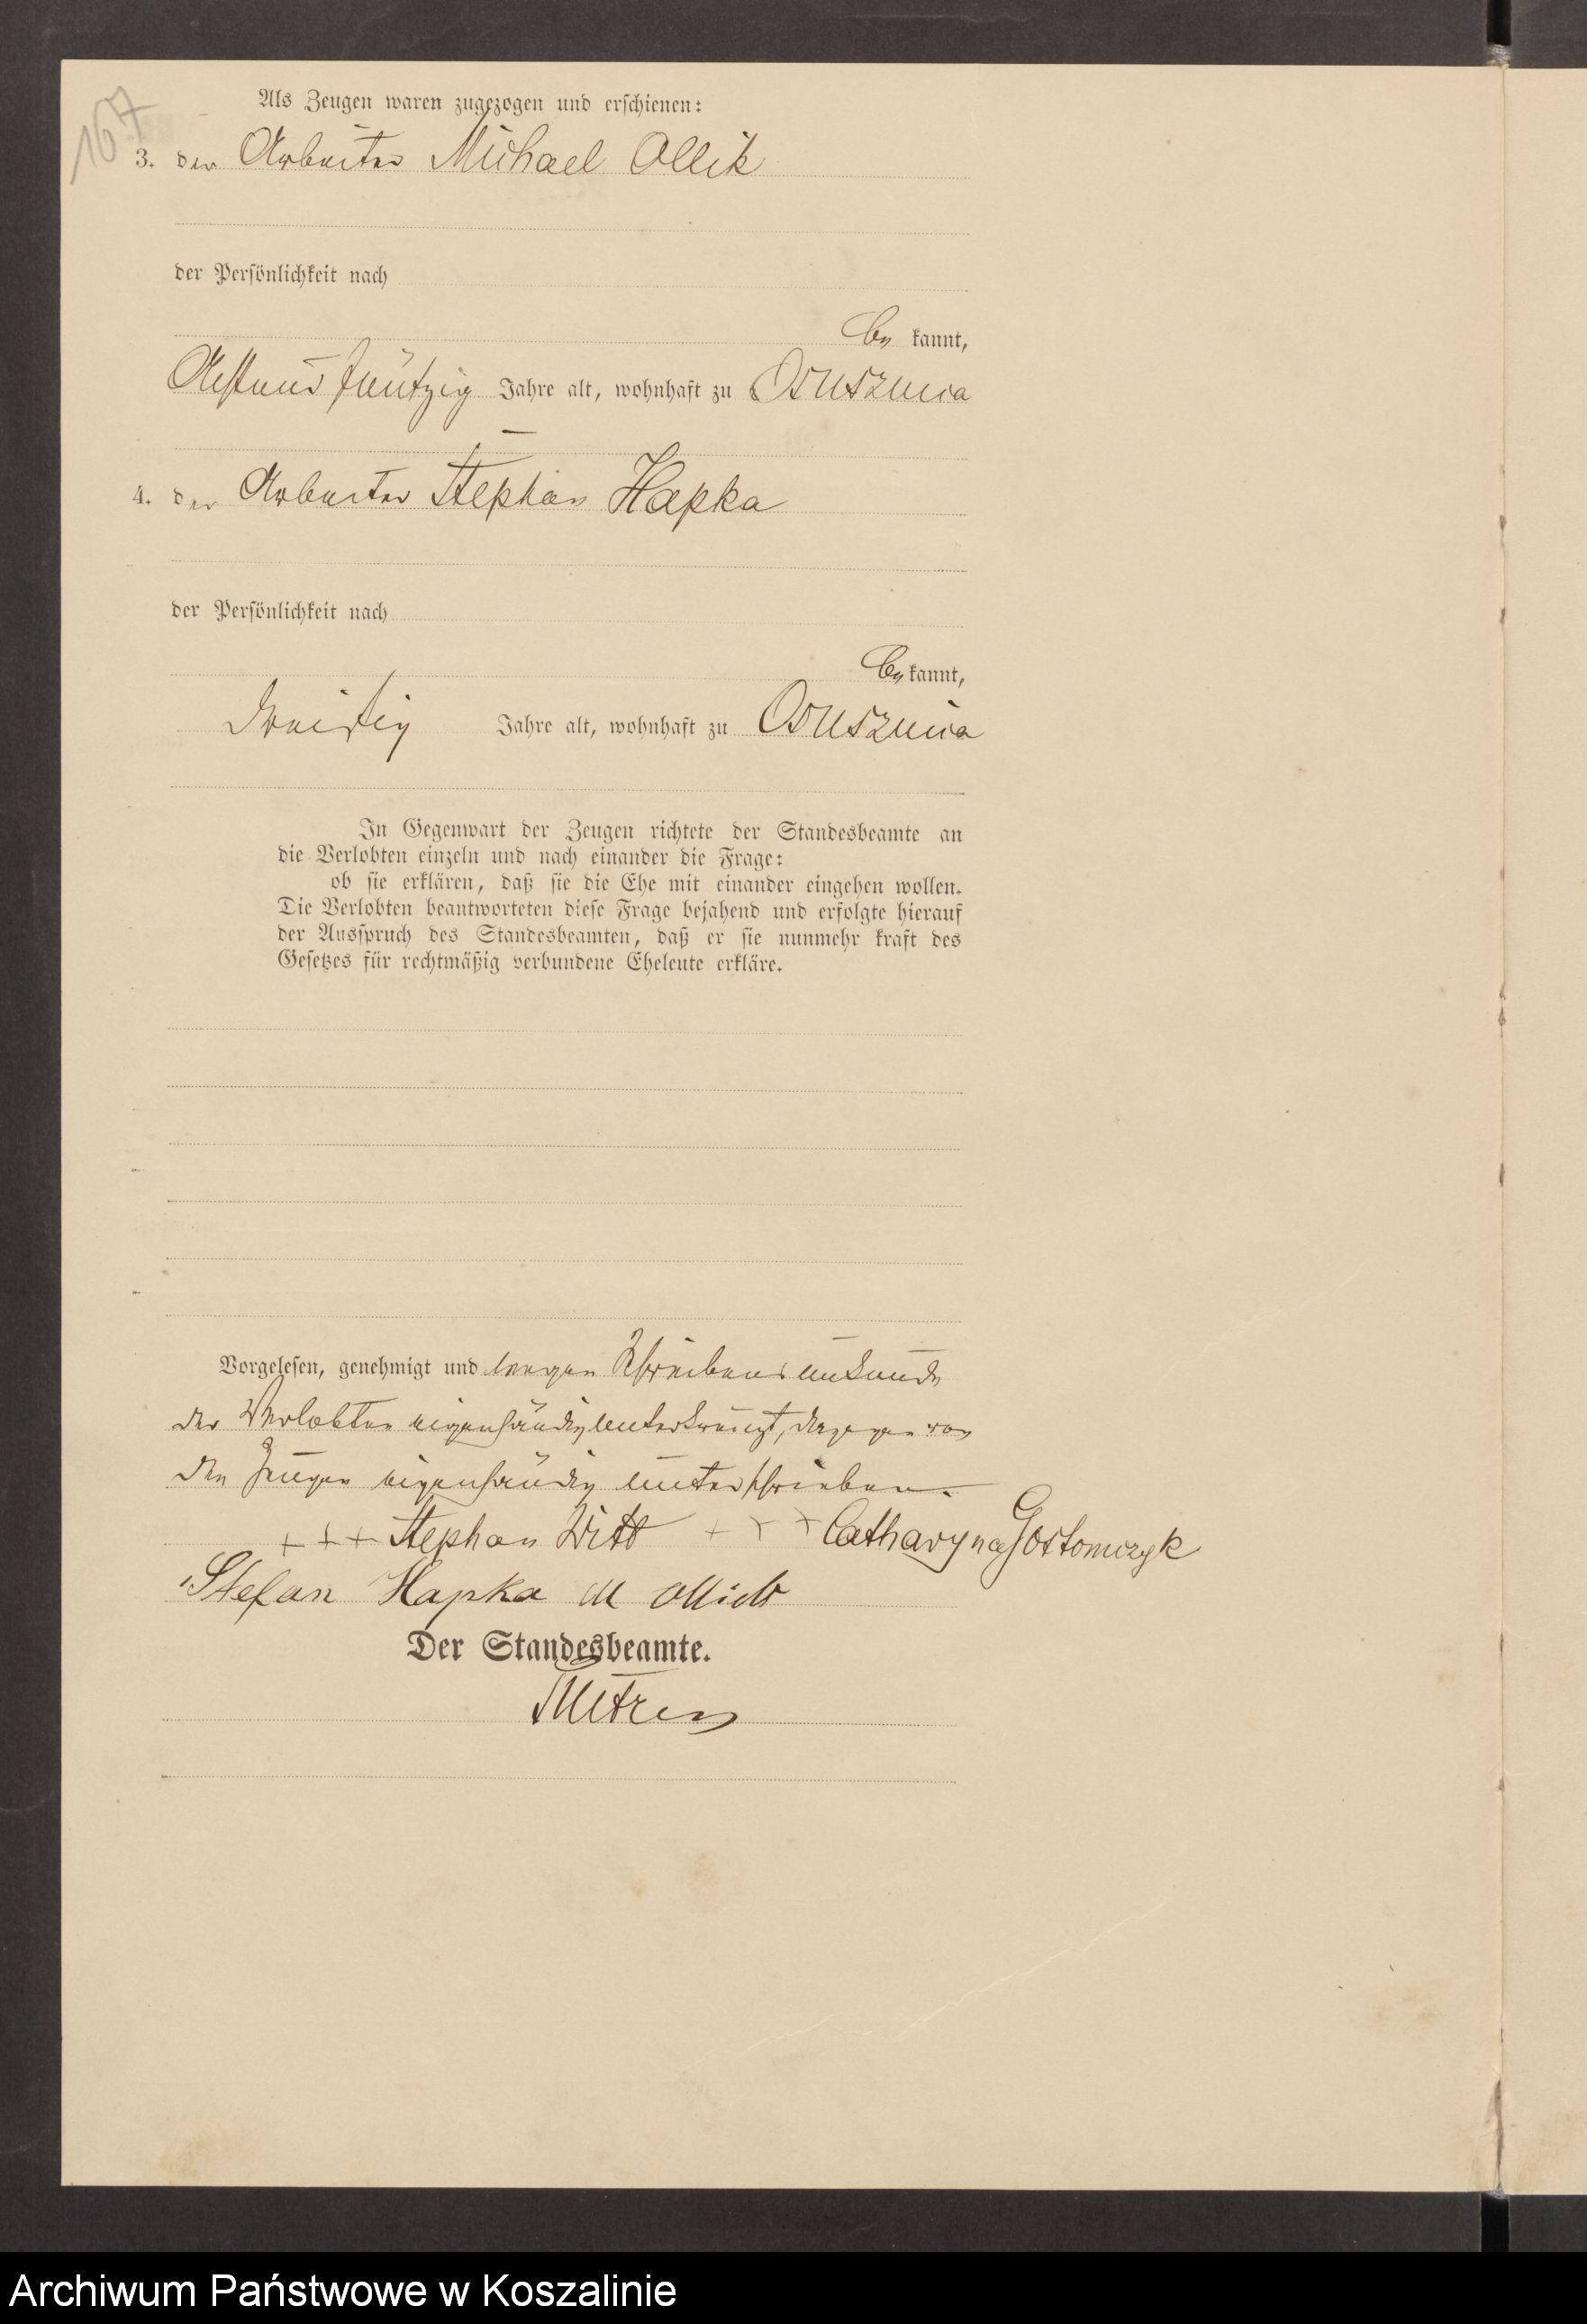 167
Als Zeugen waren zugezogen und erschienen:
3. der Arbeiter Michael Ollik
der Persönlichkeit nach
be kannt,
Achtundfünfzig Jahre alt, wohnhaft zu Osusznica
4. der Arbeiter Stephan Hapka
der Persönlichkeit nach
be kannt,
Dreißig Jahre alt, wohnhaft zu Osusznica
In Gegenwart der Zeugen richtete der Standesbeamte an
die Verlobten einzeln und nach einander die Frage:
ob sie erklären, daß sie die Ehe mit einander eingehen wollen.
Die Verlobten beantworteten diese Frage bejahend und erfolgte hierauf
der Ausspruch des Standesbeamten, daß er sie nunmehr kraft des
Gesetzes für rechtmäßig verbundene Eheleute erkläre.
Vorgelesen, genehmigt und wegen Schreibensunkunde
der Verlobten eigenhändig unterkreuzt, dagegen von
den Zeugen eigenhändig unterschrieben.
+ + + Stephan Witt + + + Catharyna Gostomczyk
Stefan Hapka M Ollick
Der Standesbeamte.
Archiwum Państwowe w Koszalinie